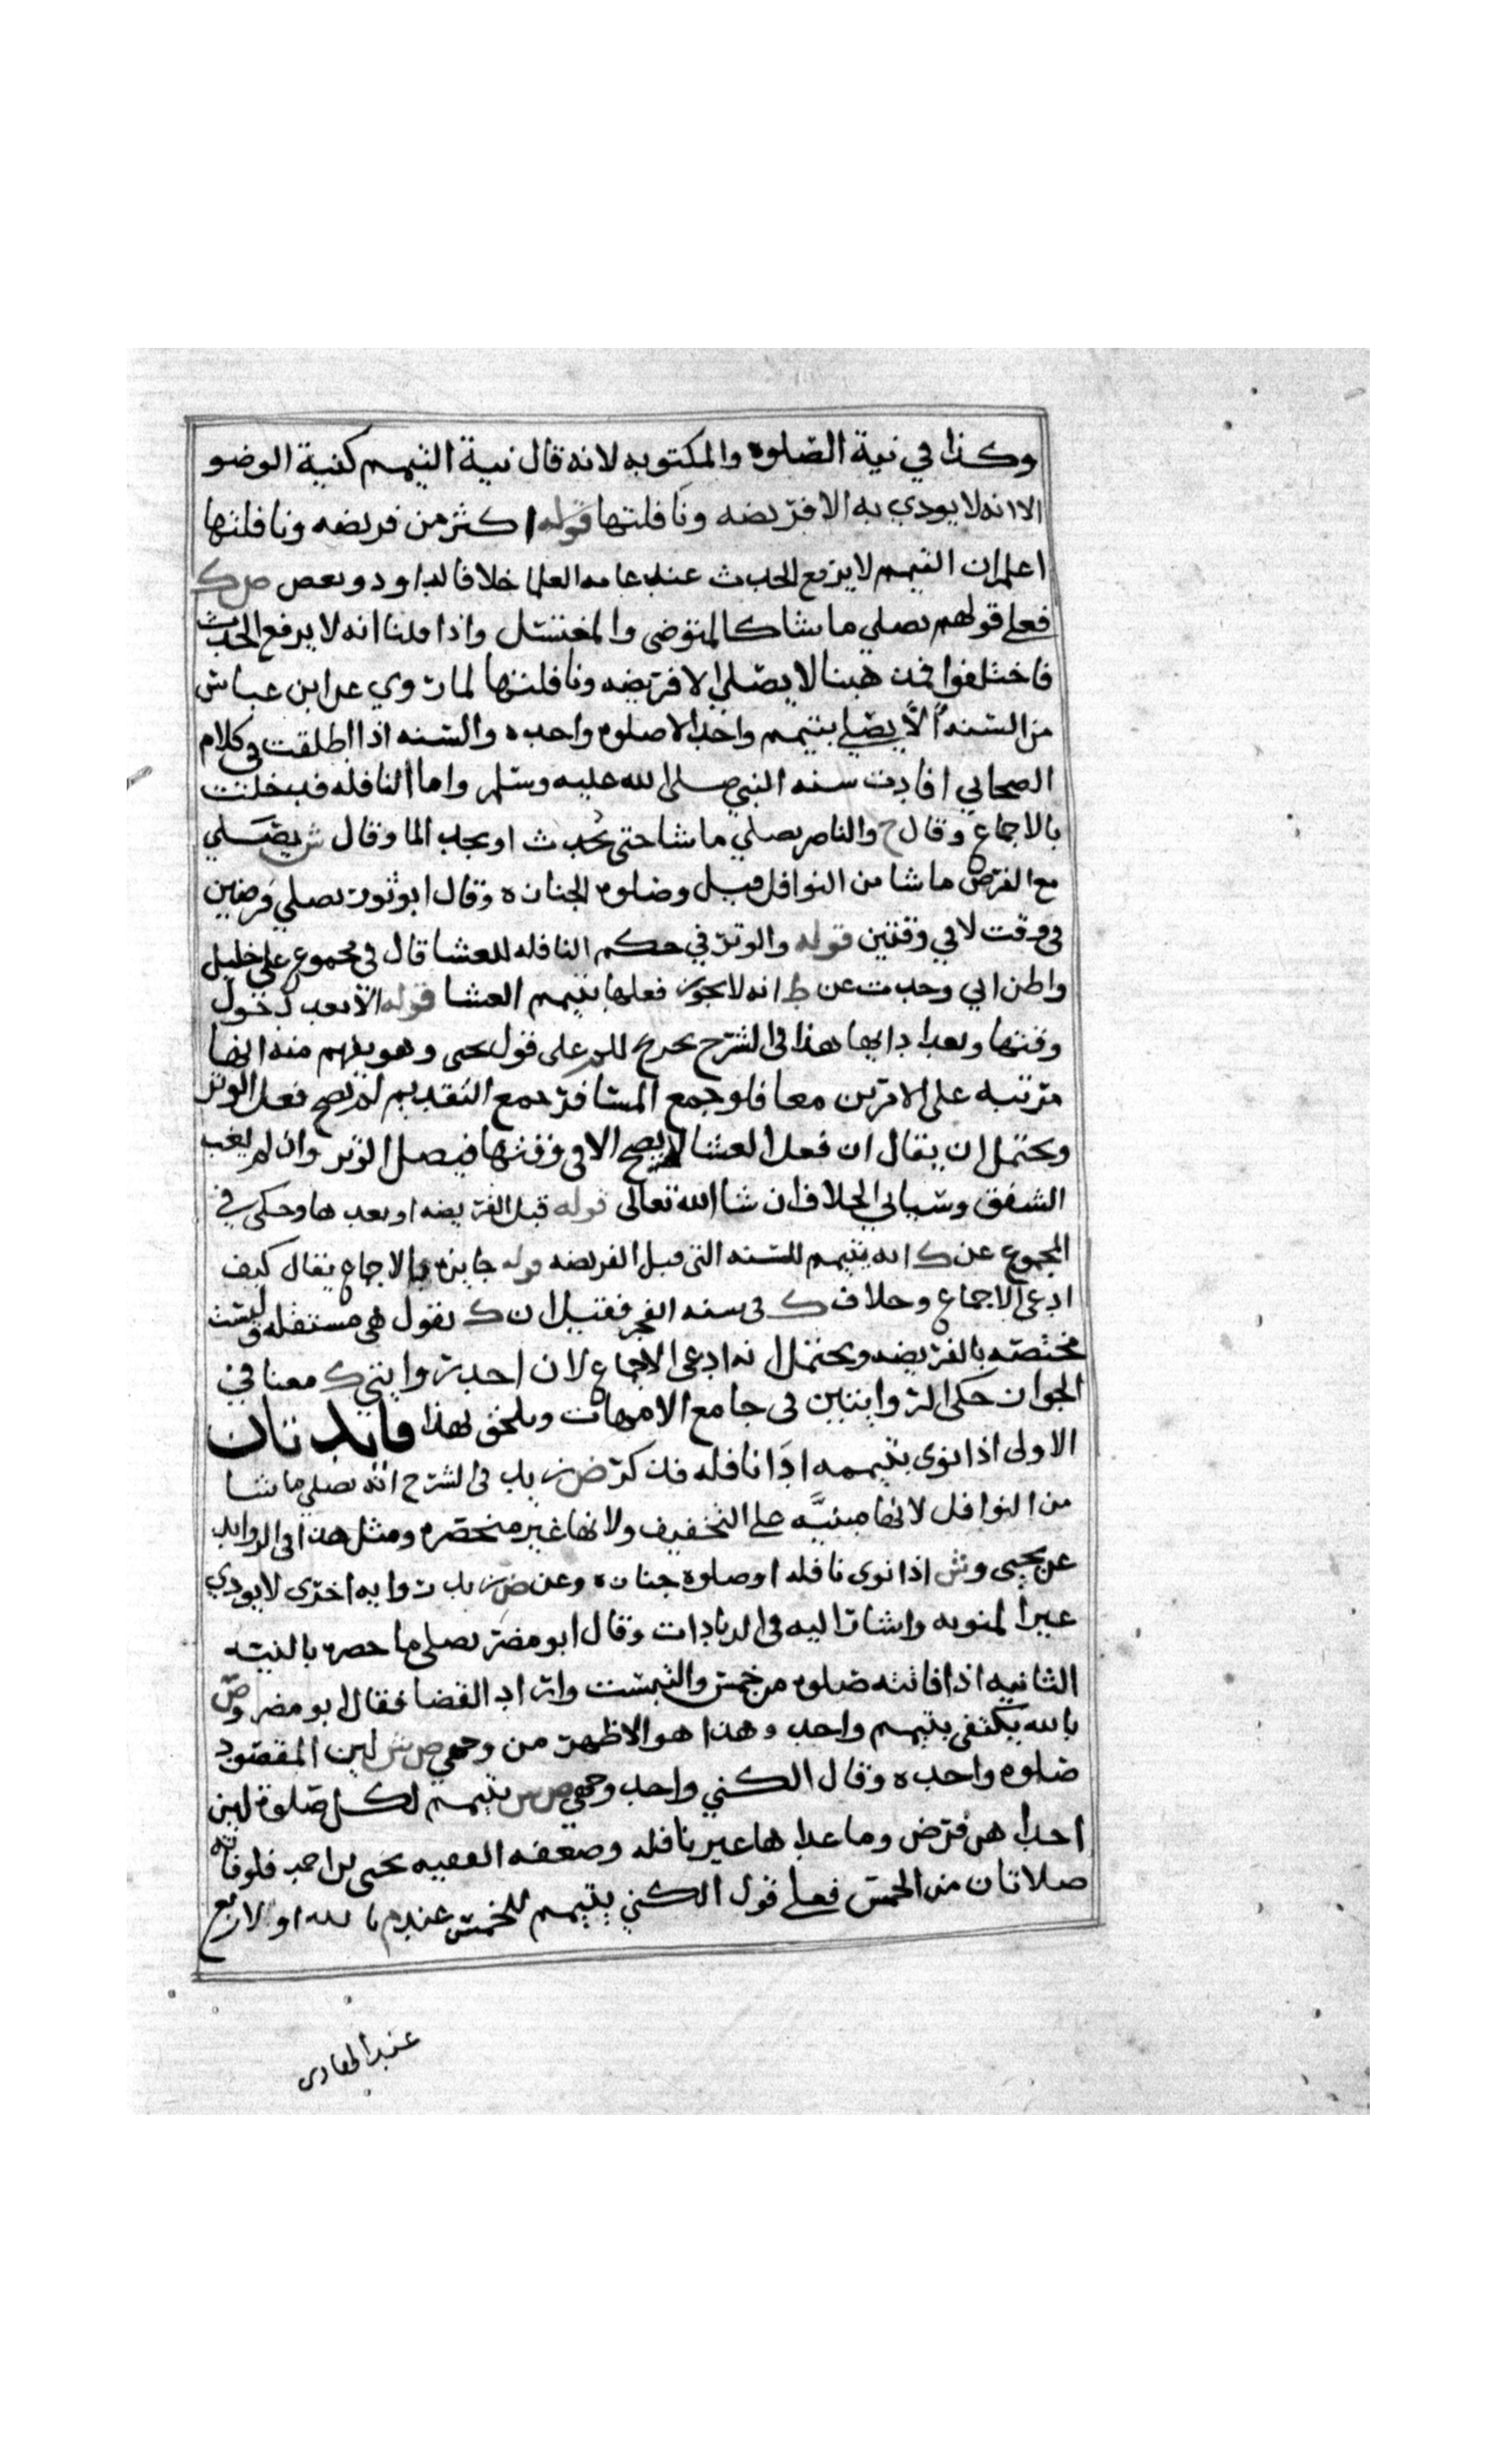 وكذا في نية الصلوه والمكتوبه لانه قال نية التيمم كنية الوضو
الا انه لا يودي به الا فريضه ونافلتها قوله اكثر من فريضه ونافلتها
اعلم ان التيمم لا يرفع الحدث عند عامه العلما خلافا لداود وبعض ص ك
فعلى قولهم يصلي ما شا كالمتوضى والمغتسل واذا قلنا انه لا يرفع الحدث
فاختلفوا فمذهبنا لا يصلي الا فريضه ونافلتها لما روي عن ابن عباس
من السنه الا يصلي بتيمم واحد الا صلوه واحده والسنه اذا اطلقت في كلام
الصحابي افادت سنه النبي صلى الله عليه وسلم واما النافله فدخلت
بالاجماع وقال ح والناصر يصلي ما شا حتى يحدث او يجد الما وقال ش يصلي
مع الفرض ما شا من النوافل قيل وصلوه الجنازه وقال ابو ثور يصلي فرضين
في وقت لا في وقتين قوله والوتر في حكم النافله للعشا قال في مجموع علي خليل
واظن اني وجدت عن ط انه لا يجوز فعلها بتيمم العشا قوله الا بعد دخول
وقتها وبعد ادايها هذا في الشرح تخريج للم على قول يحيى وهو يفهم منه انها
مترتبه على الامرين معا فلو جمع المسافر جمع التقديم لم يصح فعل الوتر
ويحتمل ان يقال ان فعل العشا لا يصح الا في وقتها فيصلى الوتر وان لم يغب
الشفق وسياتي الخلاف ان شا الله تعالى قوله قبل الفريضه او بعدها وحكى في
المجموع عن ك انه يتيمم للسنه التي قبل الفريضه قوله جايزه بالاجماع يقال كيف
ادعى الاجماع وخلاف ك في سنه الفجر فقيل ان ك يقول هي مستقله وليست
مختصه بالفريضه ويحتمل انه ادعى الاجماع لان احد روايتي ك معنا في
الجواز حكى الروايتين في جامع الامهات ويلحق بهذا فايدتان
الاولى اذا نوى بتيممه ادا نافله فذكر ض زيد في الشرح انه يصلي ما شا
من النوافل لانها مبنيه على التخفيف ولانها غير منحصره ومثل هذا في الزوايد
عن يحيى وش اذا نوى نافله او صلوه جنازه وعن ض زيد روايه اخرى لا يودي
غير المنويه واشار اليه في الزيادات وقال ابو مضر يصلي ما حصره بالنيه
الثانيه اذا فاتته صلوه من خمس والتبست واراد القضا فقال ابو مضر وص
بالله يكتفى بتيمم واحد وهذا هو الاظهر من وجهي ص ش لان المقصود
صلوه واحده وقال الكني واحد وجهي ص ش يتيمم لكل صلوه لان
احداهن فرض وما عداها غير نافله وضعفه الفقيه يحيى بن احمد فلو فاته
صلاتان من الخمس فعلى قول الكني يتيمم للخمس وعند م بالله او لاربع
عبد الهادى